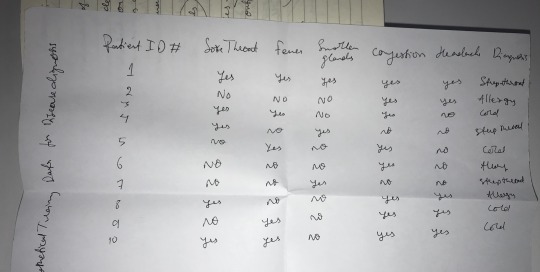 Patient ID# Sore Throat Fever Swollen glands Congestion Headache Diagnosis
1 Yes Yes Yes Yes yes Strepthroat
2 No No No Yes yes Allergy
3 yes yes No yes no cold
4 yes no yes no no strepthroat
5 no yes no yes no cold
6 No no no yes no Allergy
7 no no yes no no strepthroat
8 yes no no yes yes Allergy
9 no yes no yes yes cold
10 yes yes no yes yes cold
Training Data for Disease diagnosis